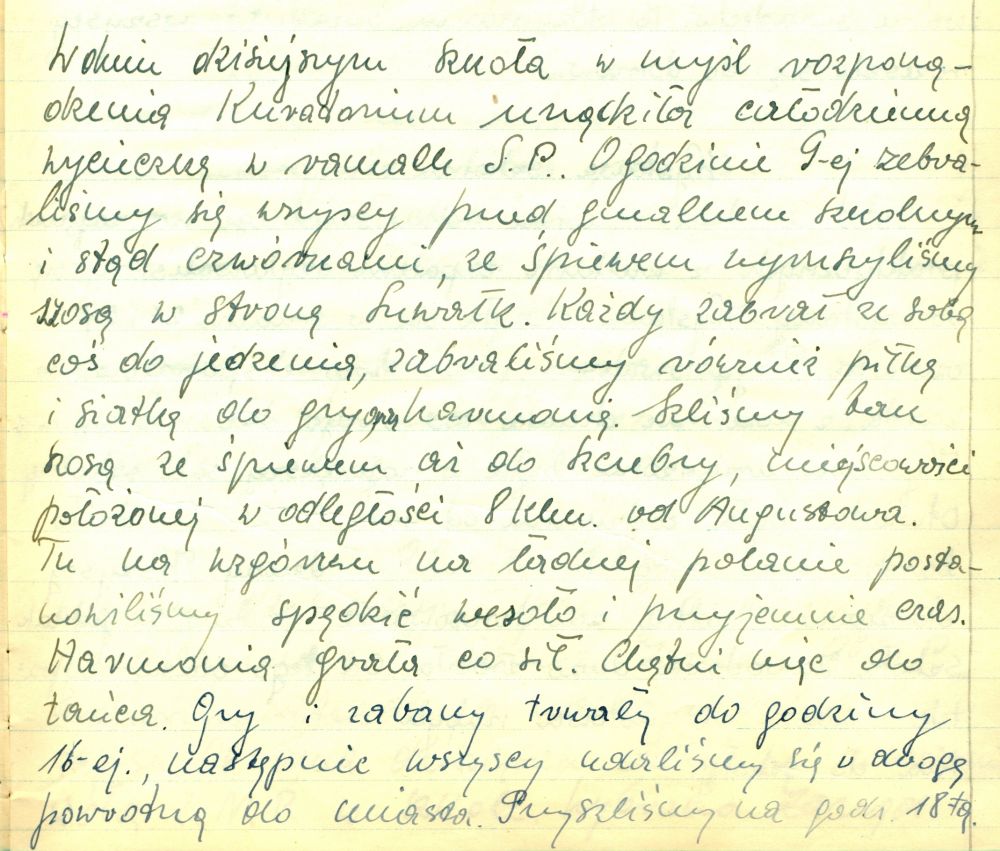 W dniu dzisiejszym szkoła w myśl rozporzą-
dzenia Kuratorium urządziła całodzienną
wycieczkę w ramach S.P.. O godzinie 9-ej zebra-
liśmy się wszyscy przed gmachem szkolnym
i stąd czwórkami, ze śpiewem wyruszyliśmy
szosą w stronę Suwałk. Każdy zabrał ze sobą
coś do jedzenia, zabraliśmy również piłkę
i siatkę do gry oraz harmonię. Szliśmy tak
szosą ze śpiewem aż do Szczebry, miejscowości
położonej w odległości 8 klm. od Augustowa.
Tu na wzgórzu na ładnej polanie posta-
nowiliśmy spędzić wesoło i przyjemnie czas.
Harmonia grała co sił. Chętni więc do
tańca. Gry i zabawy trwały do godziny
16-ej., następnie wszyscy udaliśmy się w drogę
powrotną do miasta. Przyszliśmy na godz. 18tą.